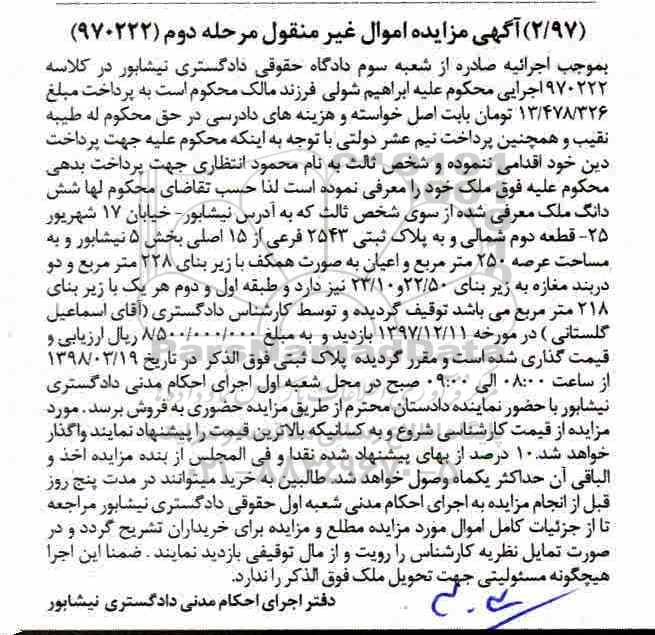 (۲/۹۷) آگهی مزایده اموال غیر منقول مرحله دوم (۹۷۰۲۲۲)
بموجب اجرائیه صادره از شعبه سوم دادگاه حقوقی دادگستری نیشابور در کلاسه
۹۷۰۲۲۲ اجرایی محکوم علیه ابراهیم شولی فرزند مالک محکوم است به پرداخت مبلغ
۱۳/۴۷۸/۳۲۶ تومان بابت اصل خواسته و هزینه های دادرسی در حق محکوم له طیبه
نقیب و همچنین پرداخت نیم عشر دولتی با توجه به اینکه محکوم علیه جهت پرداخت
دین خود اقدامی ننموده و شخص ثالث به نام محمود انتظاری جهت پرداخت بدهی
محکوم علیه فوق ملک خود را معرفی نموده است لذا حسب تقاضای محکوم لها شش
دانگ ملک معرفی شده از سوی شخص ثالث که به آدرس نیشابور- خیابان ۱۷ شهریور
۲۵- قطعه دوم شمالی و به پلاک ثبتی ۲۵۴۳ فرعی از ۱۵ اصلی بخش ۵ نیشابور و به
مساحت عرصه ۲۵۰ متر مربع و اعیان به صورت همکف با زیر بنای ۲۲۸ متر مربع و دو
دربند مغازه به زیر بنای ۲۲/۵۰ و ۲۳/۱۰ نیز دارد و طبقه اول و دوم هر یک با زیر بنای
۲۱۸ متر مربع می باشد توقیف گردیده و توسط کارشناس دادگستری (آقای اسماعیل
گلستانی ) در مورخه ۱۳۹۷/۱۲/۱۱ بازدید و به مبلغ ۸/۵۰۰/۰۰۰/۰۰۰ ریال ارزیابی و
قیمت گذاری شده است و مقرر گردیده پلاک ثبتی فوق الذکر در تاریخ ۱۳۹۸/۰۳/۱۹
از ساعت ۰۸:۰۰ الی ۰۹:۰۰ صبح در محل شعبه اول اجرای احکام مدنی دادگستری
نیشابور با حضور نماینده دادستان محترم از طریق مزایده حضوری به فروش برسد . مورد
مزایده از قیمت کارشناسی شروع و به کسانیکه بالاترین قیمت را پیشنهاد نمایند واگذار
خواهد شد.۱۰ درصد از بهای پیشنهاد شده نقدا و فی المجلس از بنده مزایده اخذ و
الباقی آن حداکثر یکماه وصول خواهد شد. طالبین به خرید میتوانند در مدت پنج روز
قبل از انجام مزایده به اجرای احکام مدنی شعبه اول حقوقی دادگستری نیشابور مراجعه
تا از جزئیات کامل اموال مورد مزایده مطلع و مزایده برای خریداران تشریح گردد و در
صورت تمایل نظریه کارشناس را رویت و از مال توقیفی بازدید نمایند . ضمنا این اجرا
هیچگونه مسئولیتی جهت تحویل ملک فوق الذکر را ندارد.
دفتر اجرای احکام مدنی دادگستری نیشابور